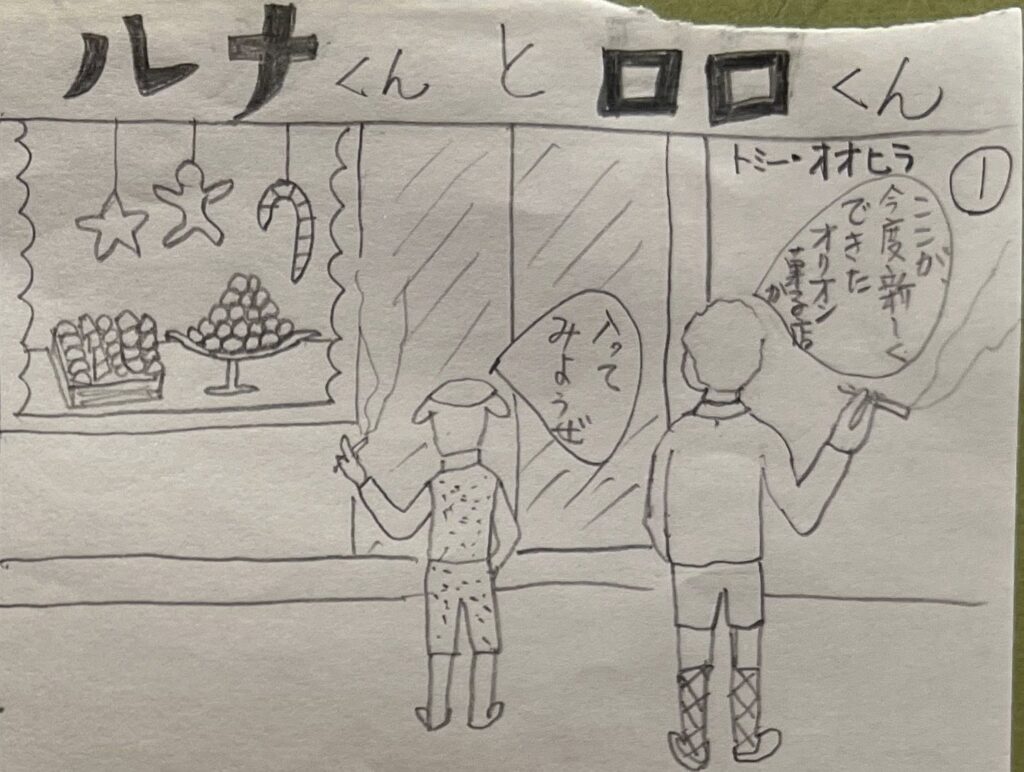 ルナくんとロロくん
トミー・オオヒラ
①
ここが、
今度新しく
できた
オリオン
菓子店
か
入って
みようぜ